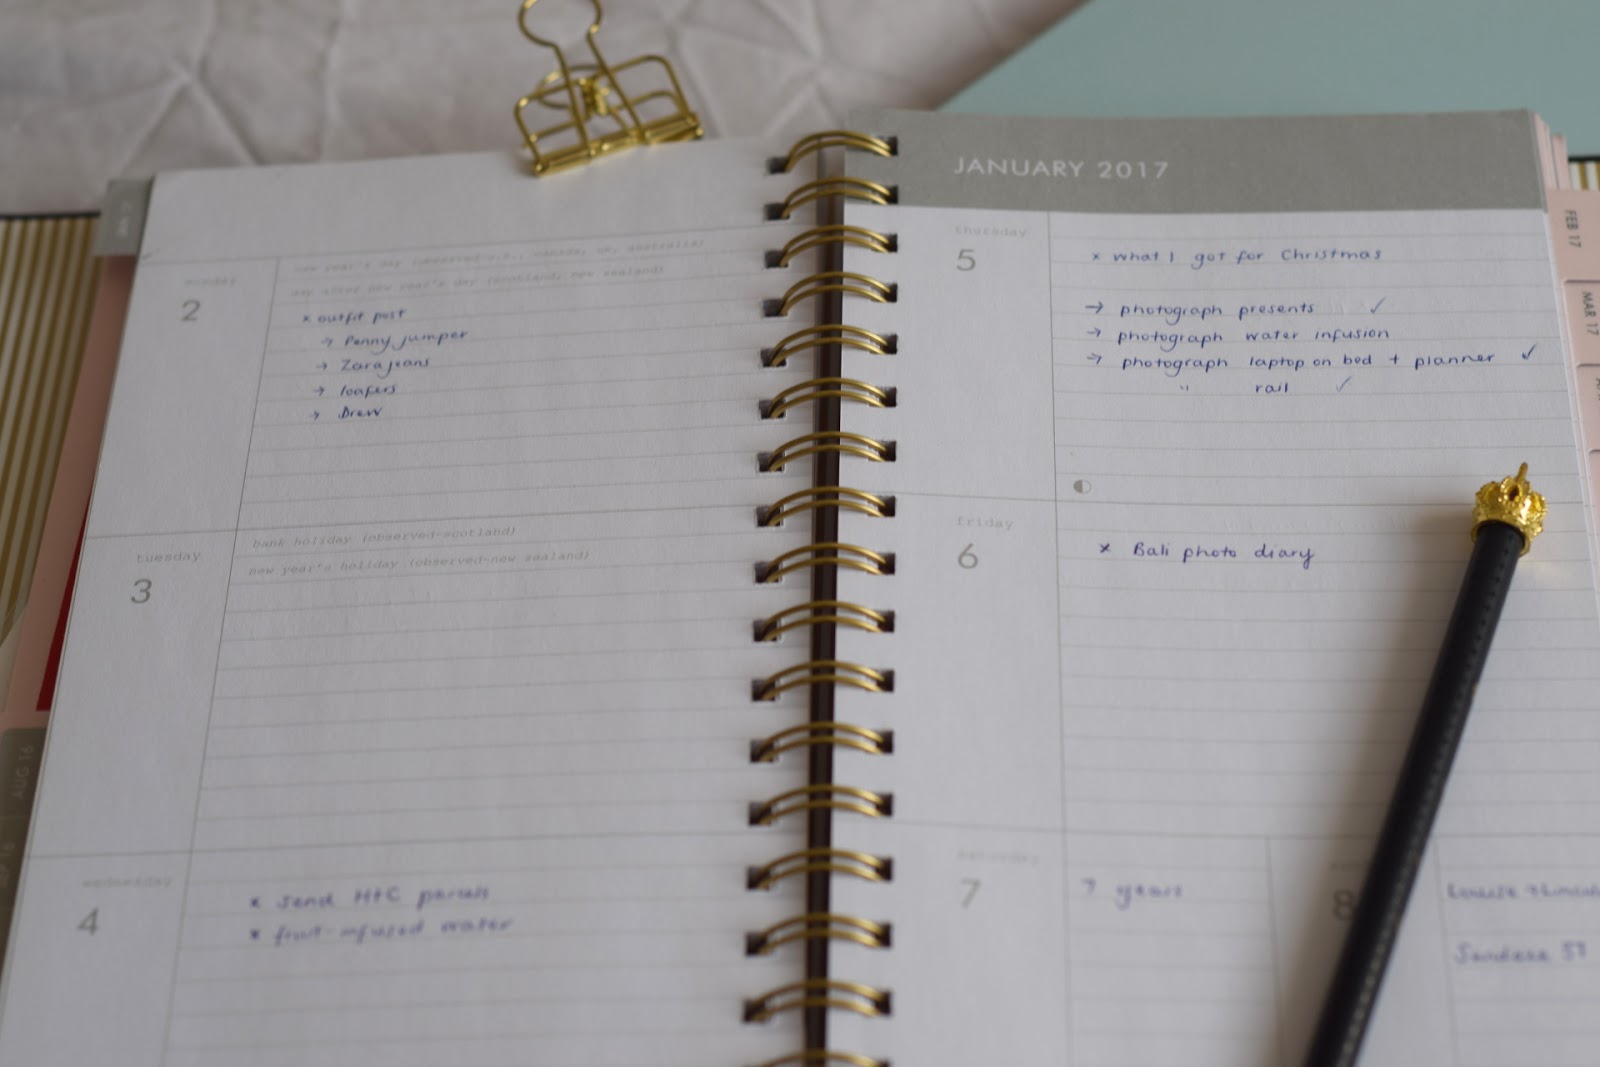 monday
2
new year's day (observed-u.s., canada, uk, australia)
day after new year's day (scotland, new zealand)
× outfit post
→ Penny jumper
→ Zara jeans
→ loafers
→ Drew
tuesday
3
bank holiday (observed-scotland)
new year's holiday (observed-new zealand)
wednesday
4
× send H+C parcels
× fruit-infused water
AUG 16
JANUARY 2017
thursday
5
× what I got for Christmas
→ photograph presents ✓
→ photograph water infusion
→ photograph laptop on bed + planner ✓
" rail ✓
friday
6
× Bali photo diary
saturday
7
7 years
8
FEB 17
MAR 17